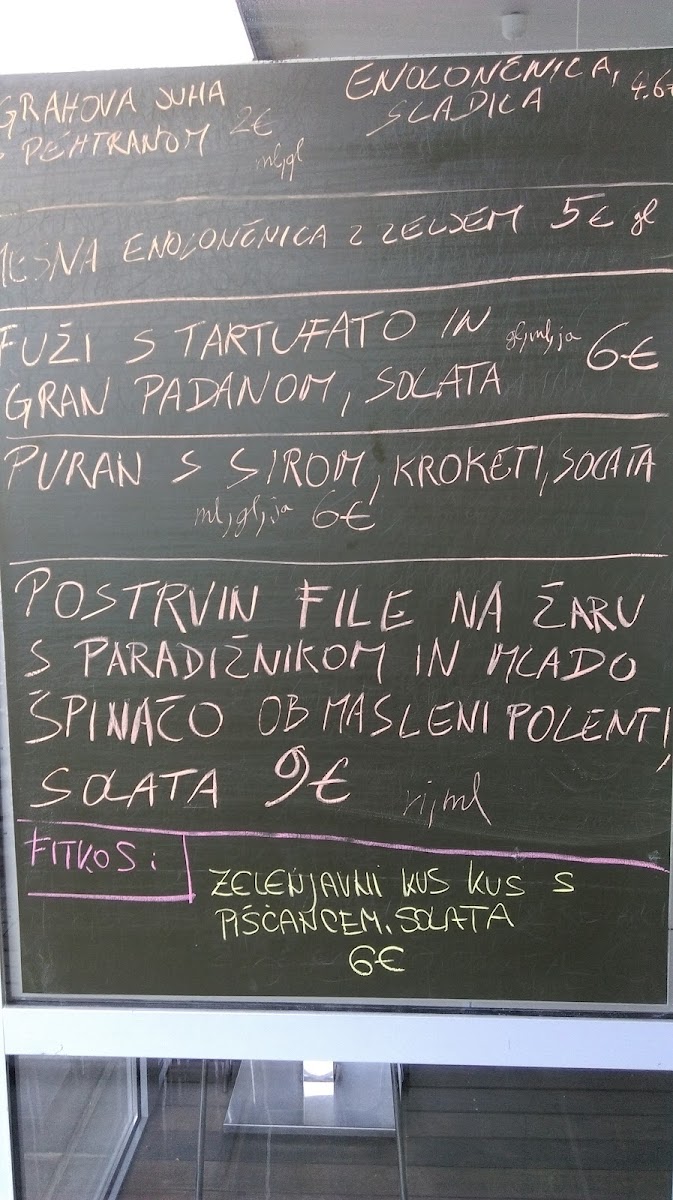 GRAHOVA JUHA
S PEHTRANOM 2€
ml, gl
ENOLONČNICA,
SLADICA 4.6€
MESNA ENOLONČNICA Z ZELJEM 5€ gl
FUŽI S TARTUFATO IN gl, ml, ja 6€
GRAN PADANOM, SOLATA
PURAN S SIROM, KROKETI, SOLATA
ml, gl, ja 6€
POSTRVIN FILE NA ŽARU
S PARADIŽNIKOM IN MLADO
ŠPINAČO OB MASLENI POLENTI,
SOLATA 9€ ri, ml
FITKOS:
ZELENJAVNI KUS KUS S
PIŠČANCEM, SOLATA
6€